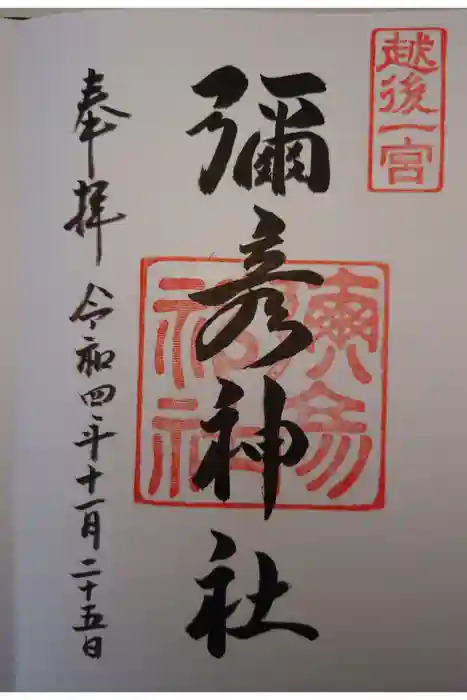 越後一宮
彌彦神社
彌彦神社
奉拝 令和四年十一月二十五日